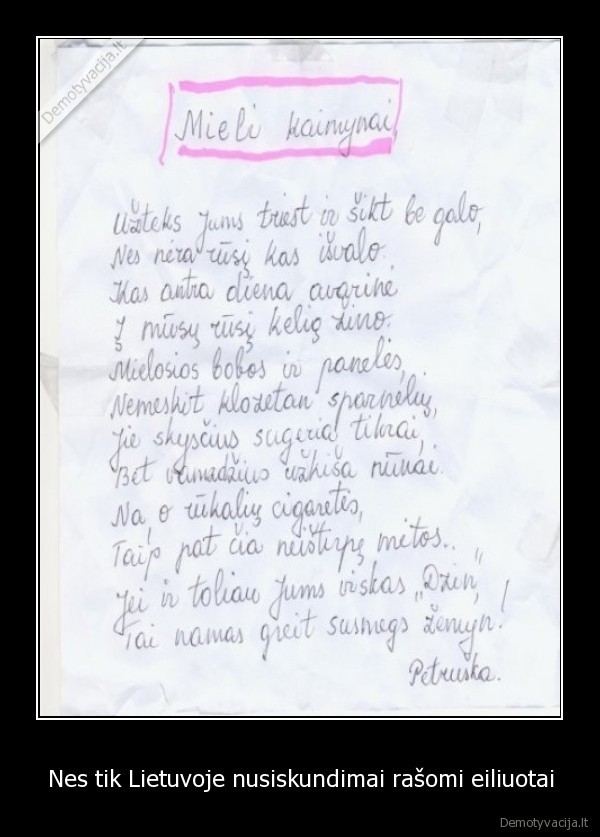 Demotyvacija.lt
Mieli kaimynai,
Užteks Jums triest ir šikt be galo,
Nes nėra rūsį kas išvalo.
Kas antra diena avarinė
Į mūsų rūsį kelią žino.
Mielosios bobos ir panelės,
Nemeskit klozetan sparnelių,
Jie skysčius sugeria tikrai,
Bet vamzdžius užkiša nūnai.
Na, o rūkalių cigaretės,
Taip pat čia neištirpę mėtos..
Jei ir toliau Jums viskas „Dzin",
Tai namas greit susmegs žemyn!
Petruška.
Nes tik Lietuvoje nusiskundimai rašomi eiliuotai
Demotyvacija.lt